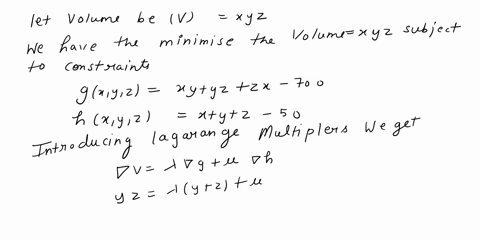 let Volume be (V) = xyz
We have the minimise the Volume = xyz subject
to constraints
g(x,y,z) = xy+yz+zx - 700
h(x,y,z) = x+y+z - 50
Introducing lagarange Multiplers We get
∇V = λ∇g + u ∇h
yz = λ(y+z) + u